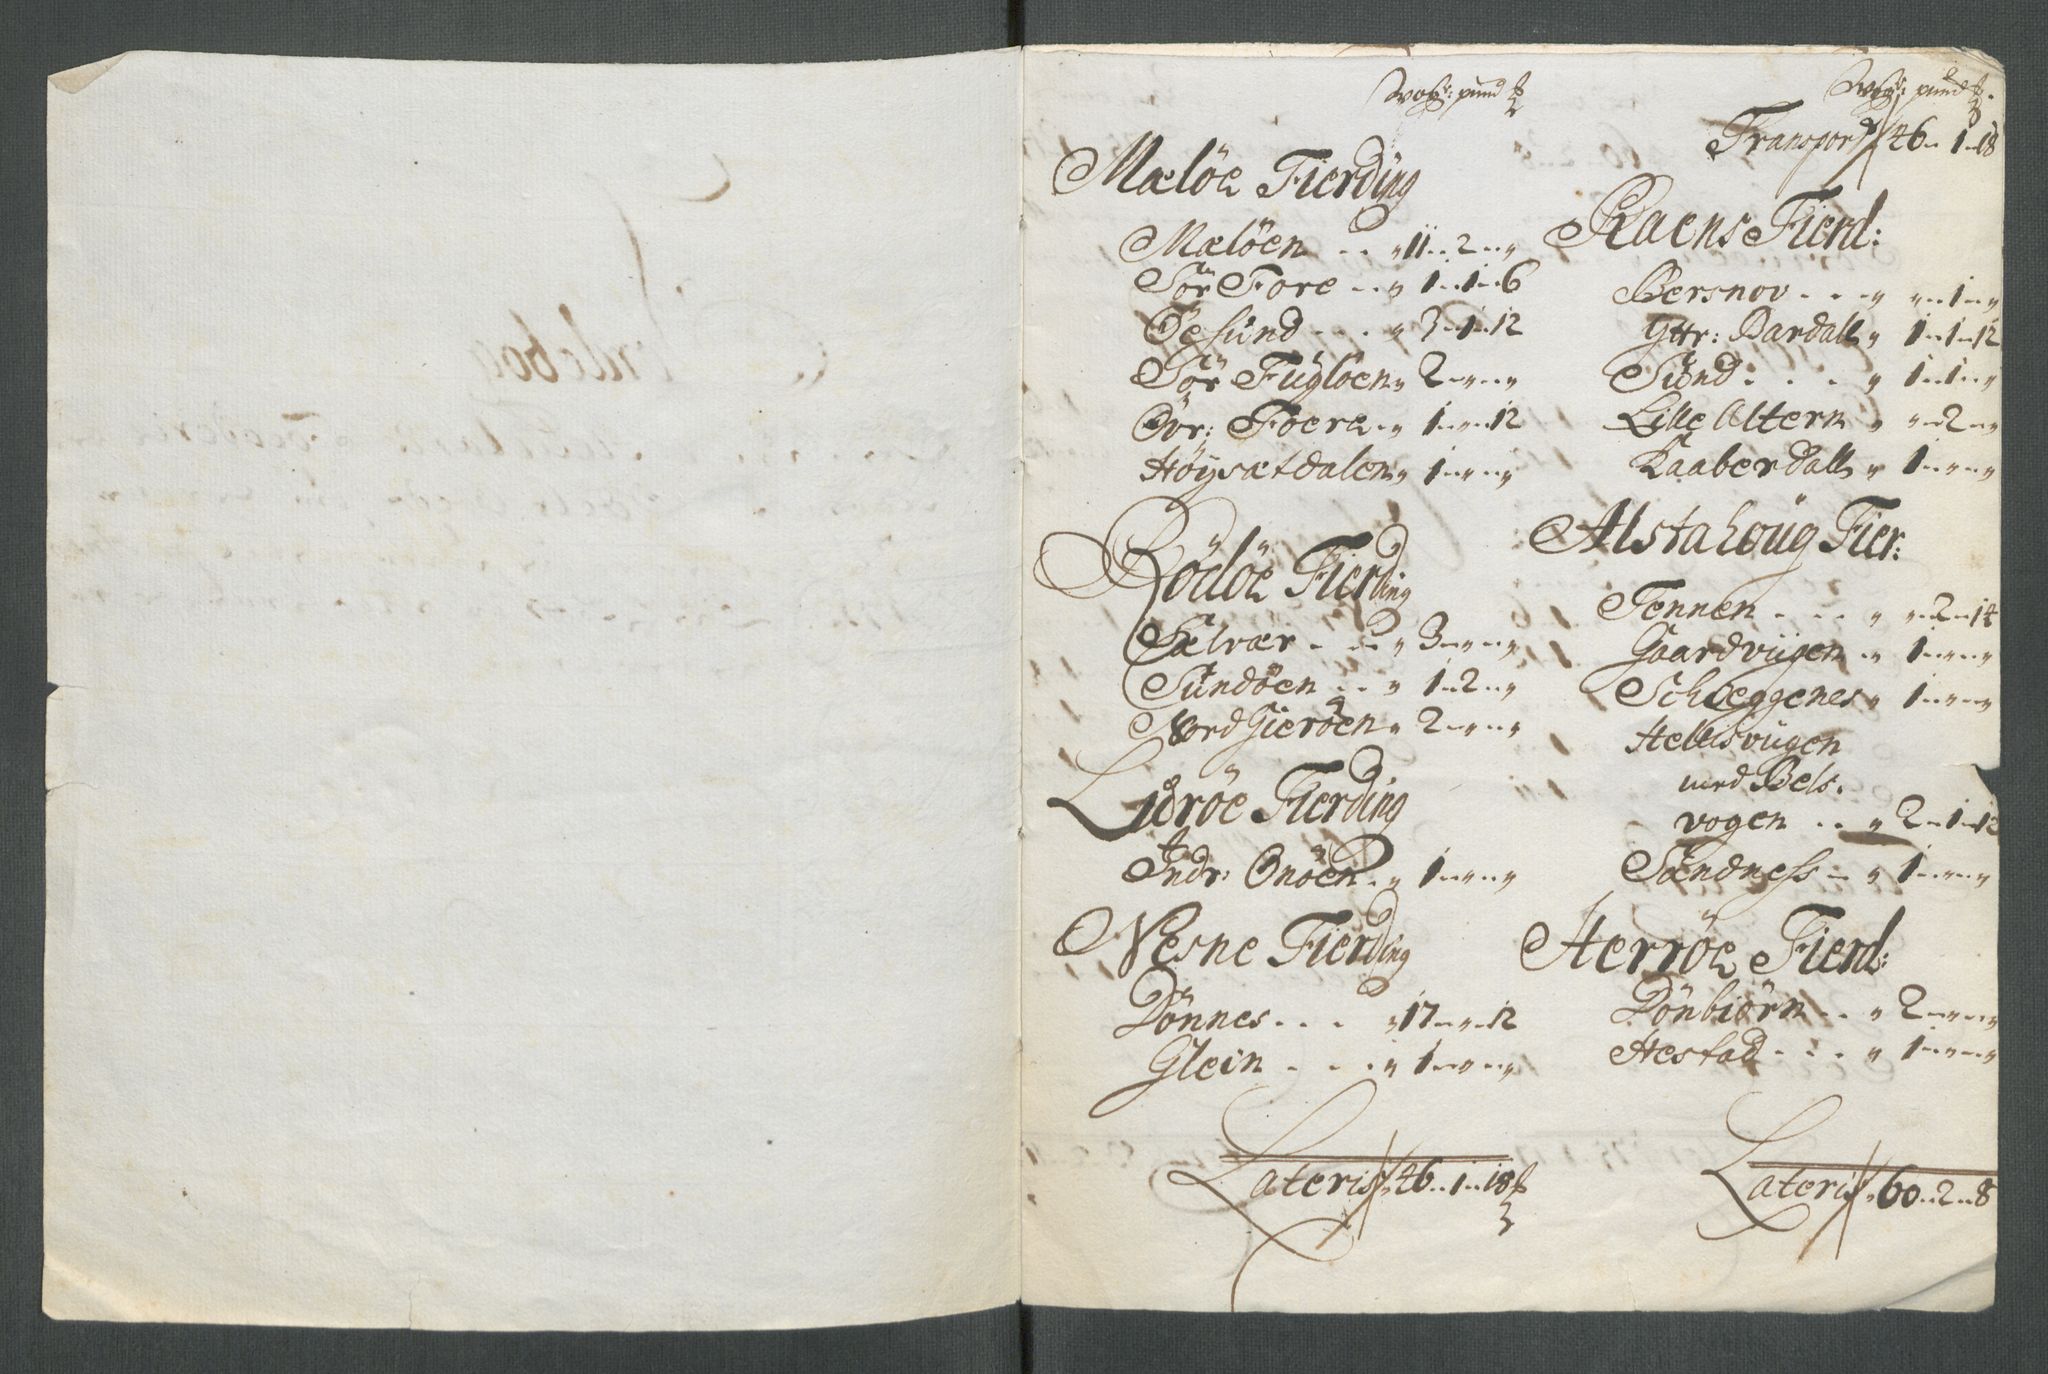 wog: pund ℔
Mælöe Fierding
Mælöen . . „ 11 . . 2 . . „
Sör Fore . . „ 1 . . 1 . . 6
Öesund . . . „ 3 . . 1 . . 12
Sör Fuglöen „ 2 . . „ . . „
Övr: Foere . „ 1 . . „ . . 12
Höysætdalen „ 1 . . „ . . „
Rödöe Fierding
Sælvær . . . „ 3 . . „ . . „
Sundöen . . „ 1 . . 2 . . „
Nord Gieröen „ 2 . . „ . . „
Luröe Fierding
Indr: Onöen . „ 1 . . „ . . „
Nesne Fierding
Dönnes . . . „ 17 . . „ . . 12
Glein . . . „ 1 . . „ . . „
Lateris „ 46 . . 1 . . 18 ℔
wog: pund ℔.
Transport 46 . . 1 . . 18
Raens Fierd:
Bersnov . . . „ „ . . 1 . . „
Yttr: Bardall „ 1 . . 1 . . 12
Sund . . . . „ 1 . . 1 . . „
Lille Altern „ „ . . 2 . . „
Kaaberdall „ 1 . . „ . . „
Alstahoug Fier:
Tennen . . . „ „ . . 2 . . 14
Gaardviigen . . 1 . . „ . . „
Scheggenes „ 1 . . „ . . „
Hellisviigen
med Bels-
vogen . . „ 2 . . 1 . . 12
Sandness . . „ 1 . . „ . . „
Herröe Fierd:
Dönbiörn . . „ 2 . . „ . . „
Hestad . . . „ 1 . . „ . . „
Lateris „ 60 . . 2 . . 8